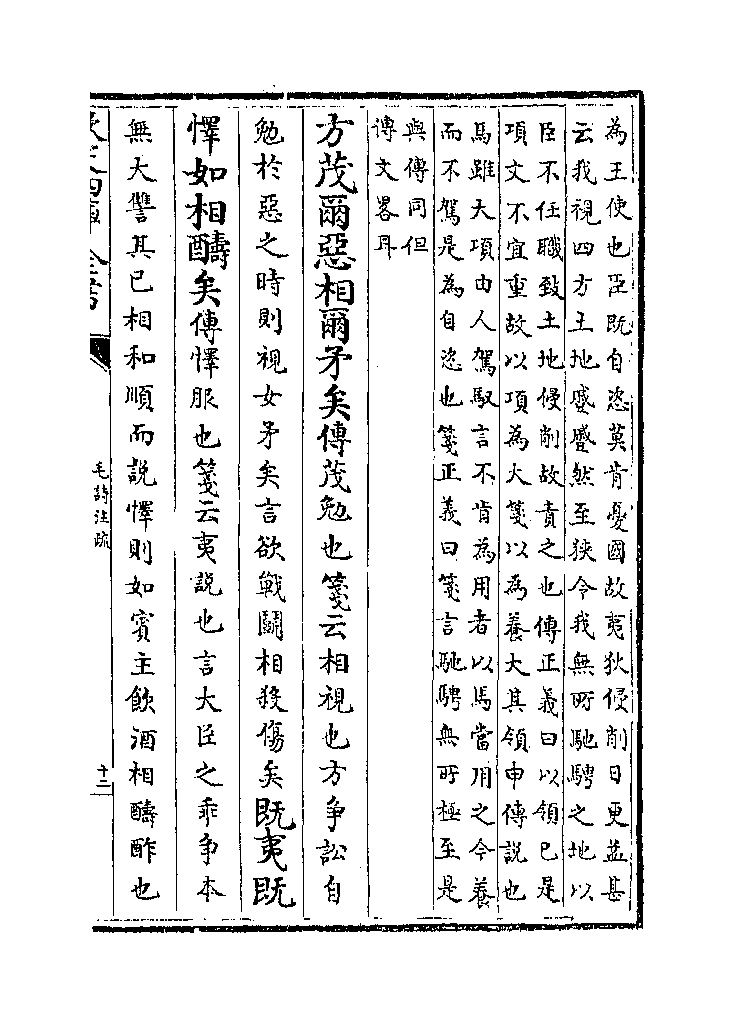 為王使也臣既自恣莫肯憂國故夷狄侵削日更益甚
云我視四方土地蹙蹙然至狹令我無所馳騁之地以
臣不任職致土地侵削故責之也傳正義曰以領已是
項文不宜重故以項為大箋以為養大其領申傳說也
馬雖大項由人駕馭言不肯為用者以馬當用之今養
而不駕是為自恣也箋正義曰箋言馳騁無所極至是
與傳同但
傳文畧耳
方茂爾惡相爾矛矣傳茂勉也箋云相視也方争訟自
勉於惡之時則視女矛矣言欲戰鬬相殺傷矣既夷既
懌如相醻矣傳懌服也箋云夷說也言大臣之乖争本
無大讐其已相和順而說懌則如賓主飲酒相醻酢也
欽定四庫全書
毛詩注疏
十二